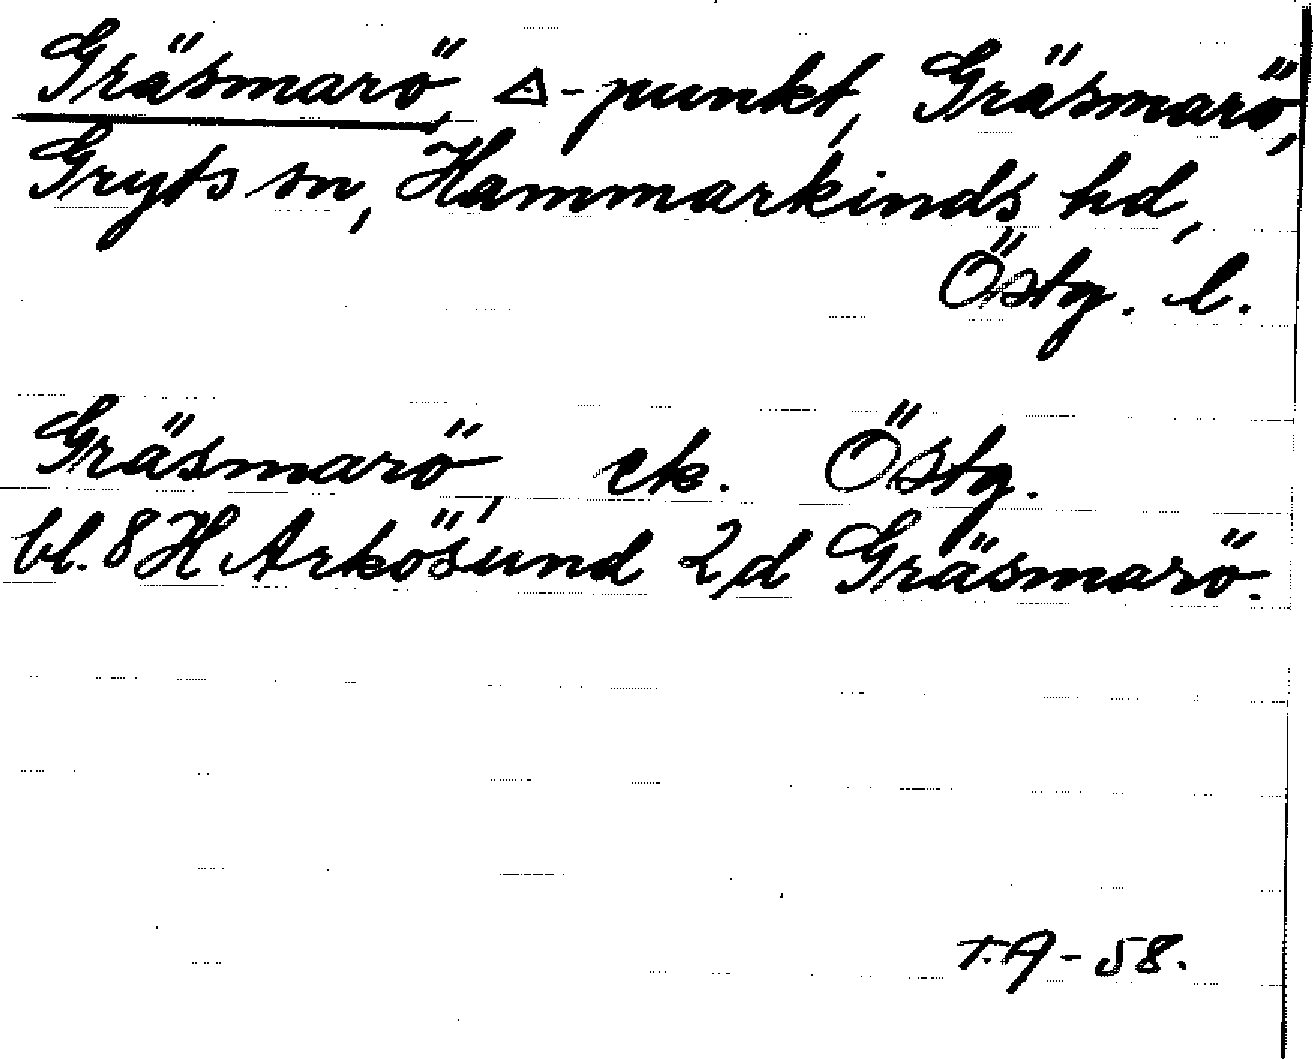 Gräsmarö, △-punkt, Gräsmarö,
Gryts sn, Hammarkinds hd,
Östg. l.
Gräsmarö, ek. Östg.
bl. 8 H Arkösund 2d Gräsmarö.
T.A-58.